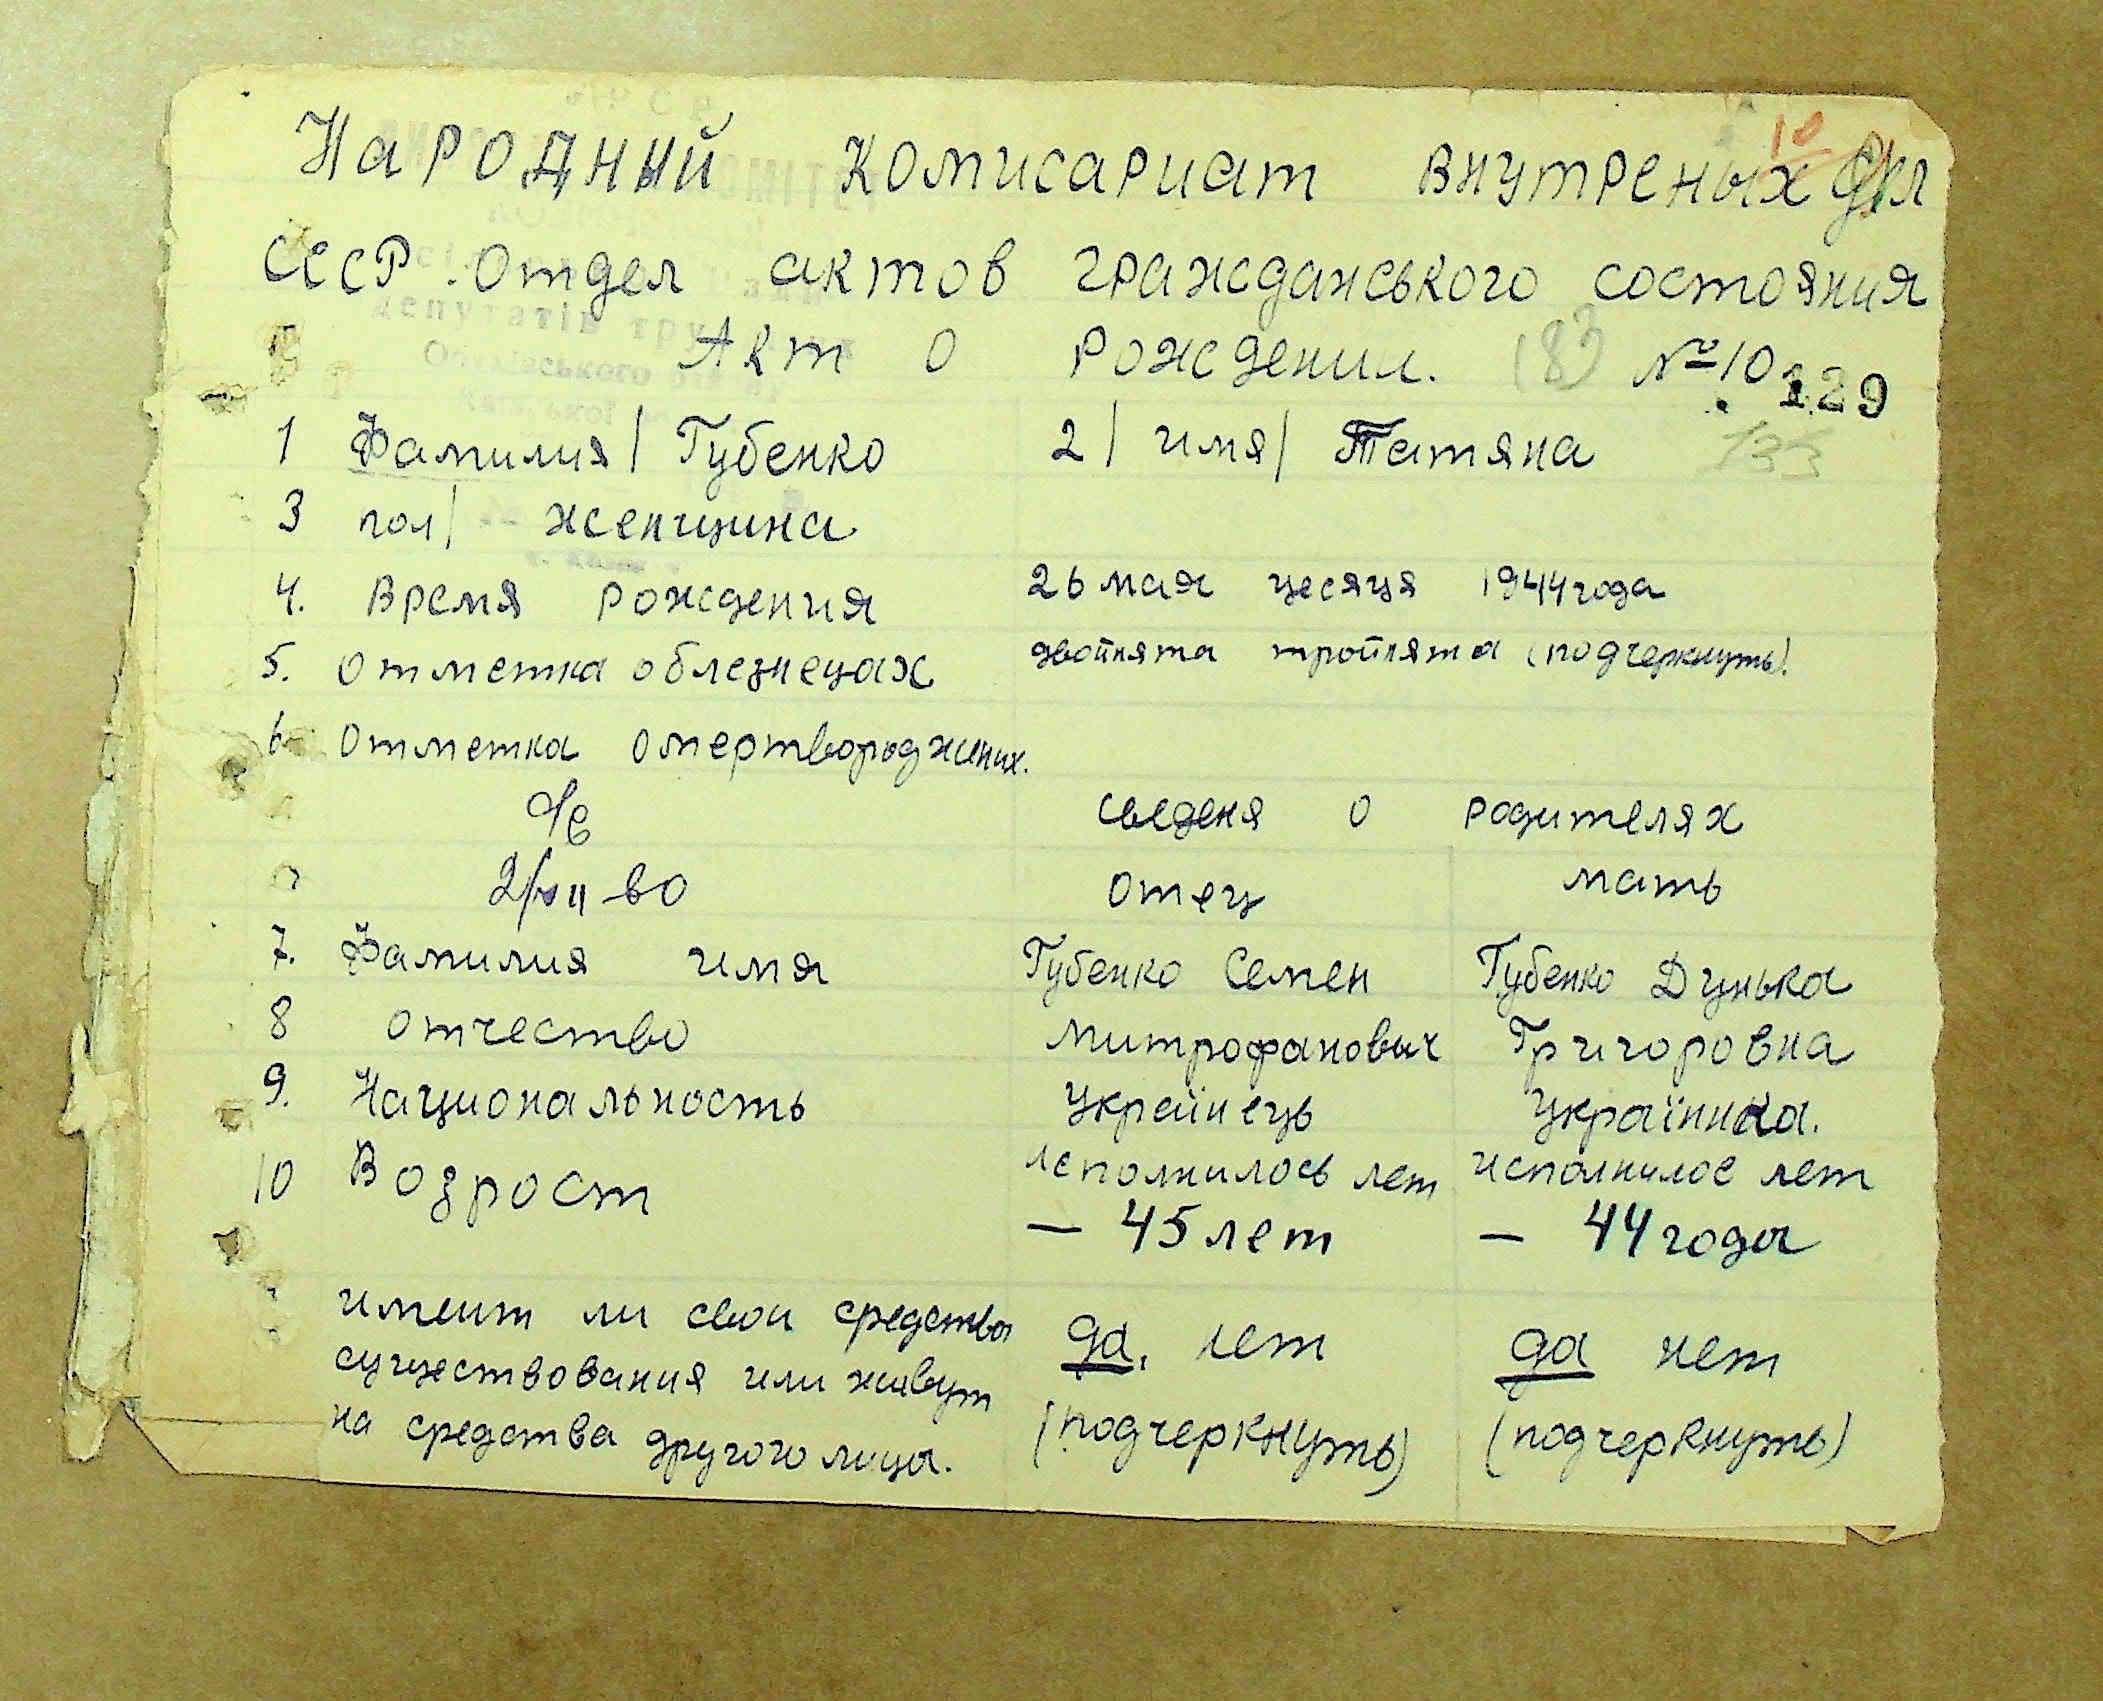 10
Народный комисариат внутреных дел
СССР. Отдел актов гражданського состояния
Акт о рождении. 183 № 10 129
133
1 Фамилия / Губенко 2 / имя / Татяна
3 пол / женщина
4. Время рождения 26 мая цесяця 1944 года
5. отметка облезнецах двойнята тройлята (подчеркнуть).
6 Отметка омертворьоджених.
сведеня о родителях
отец мать
7. Фамилия имя Губенко Семен Губенко Дунька
8 отчество Митрофанович Григоровна
9. Национальность Украінець Українка.
10 Возрост исполнилось лет исполнилос лет
— 45 лет — 44 годы
имеит ли свои средства да, нет да нет
существования или живут
на средства другого лица. (подчеркнуть) (подчеркнуть)